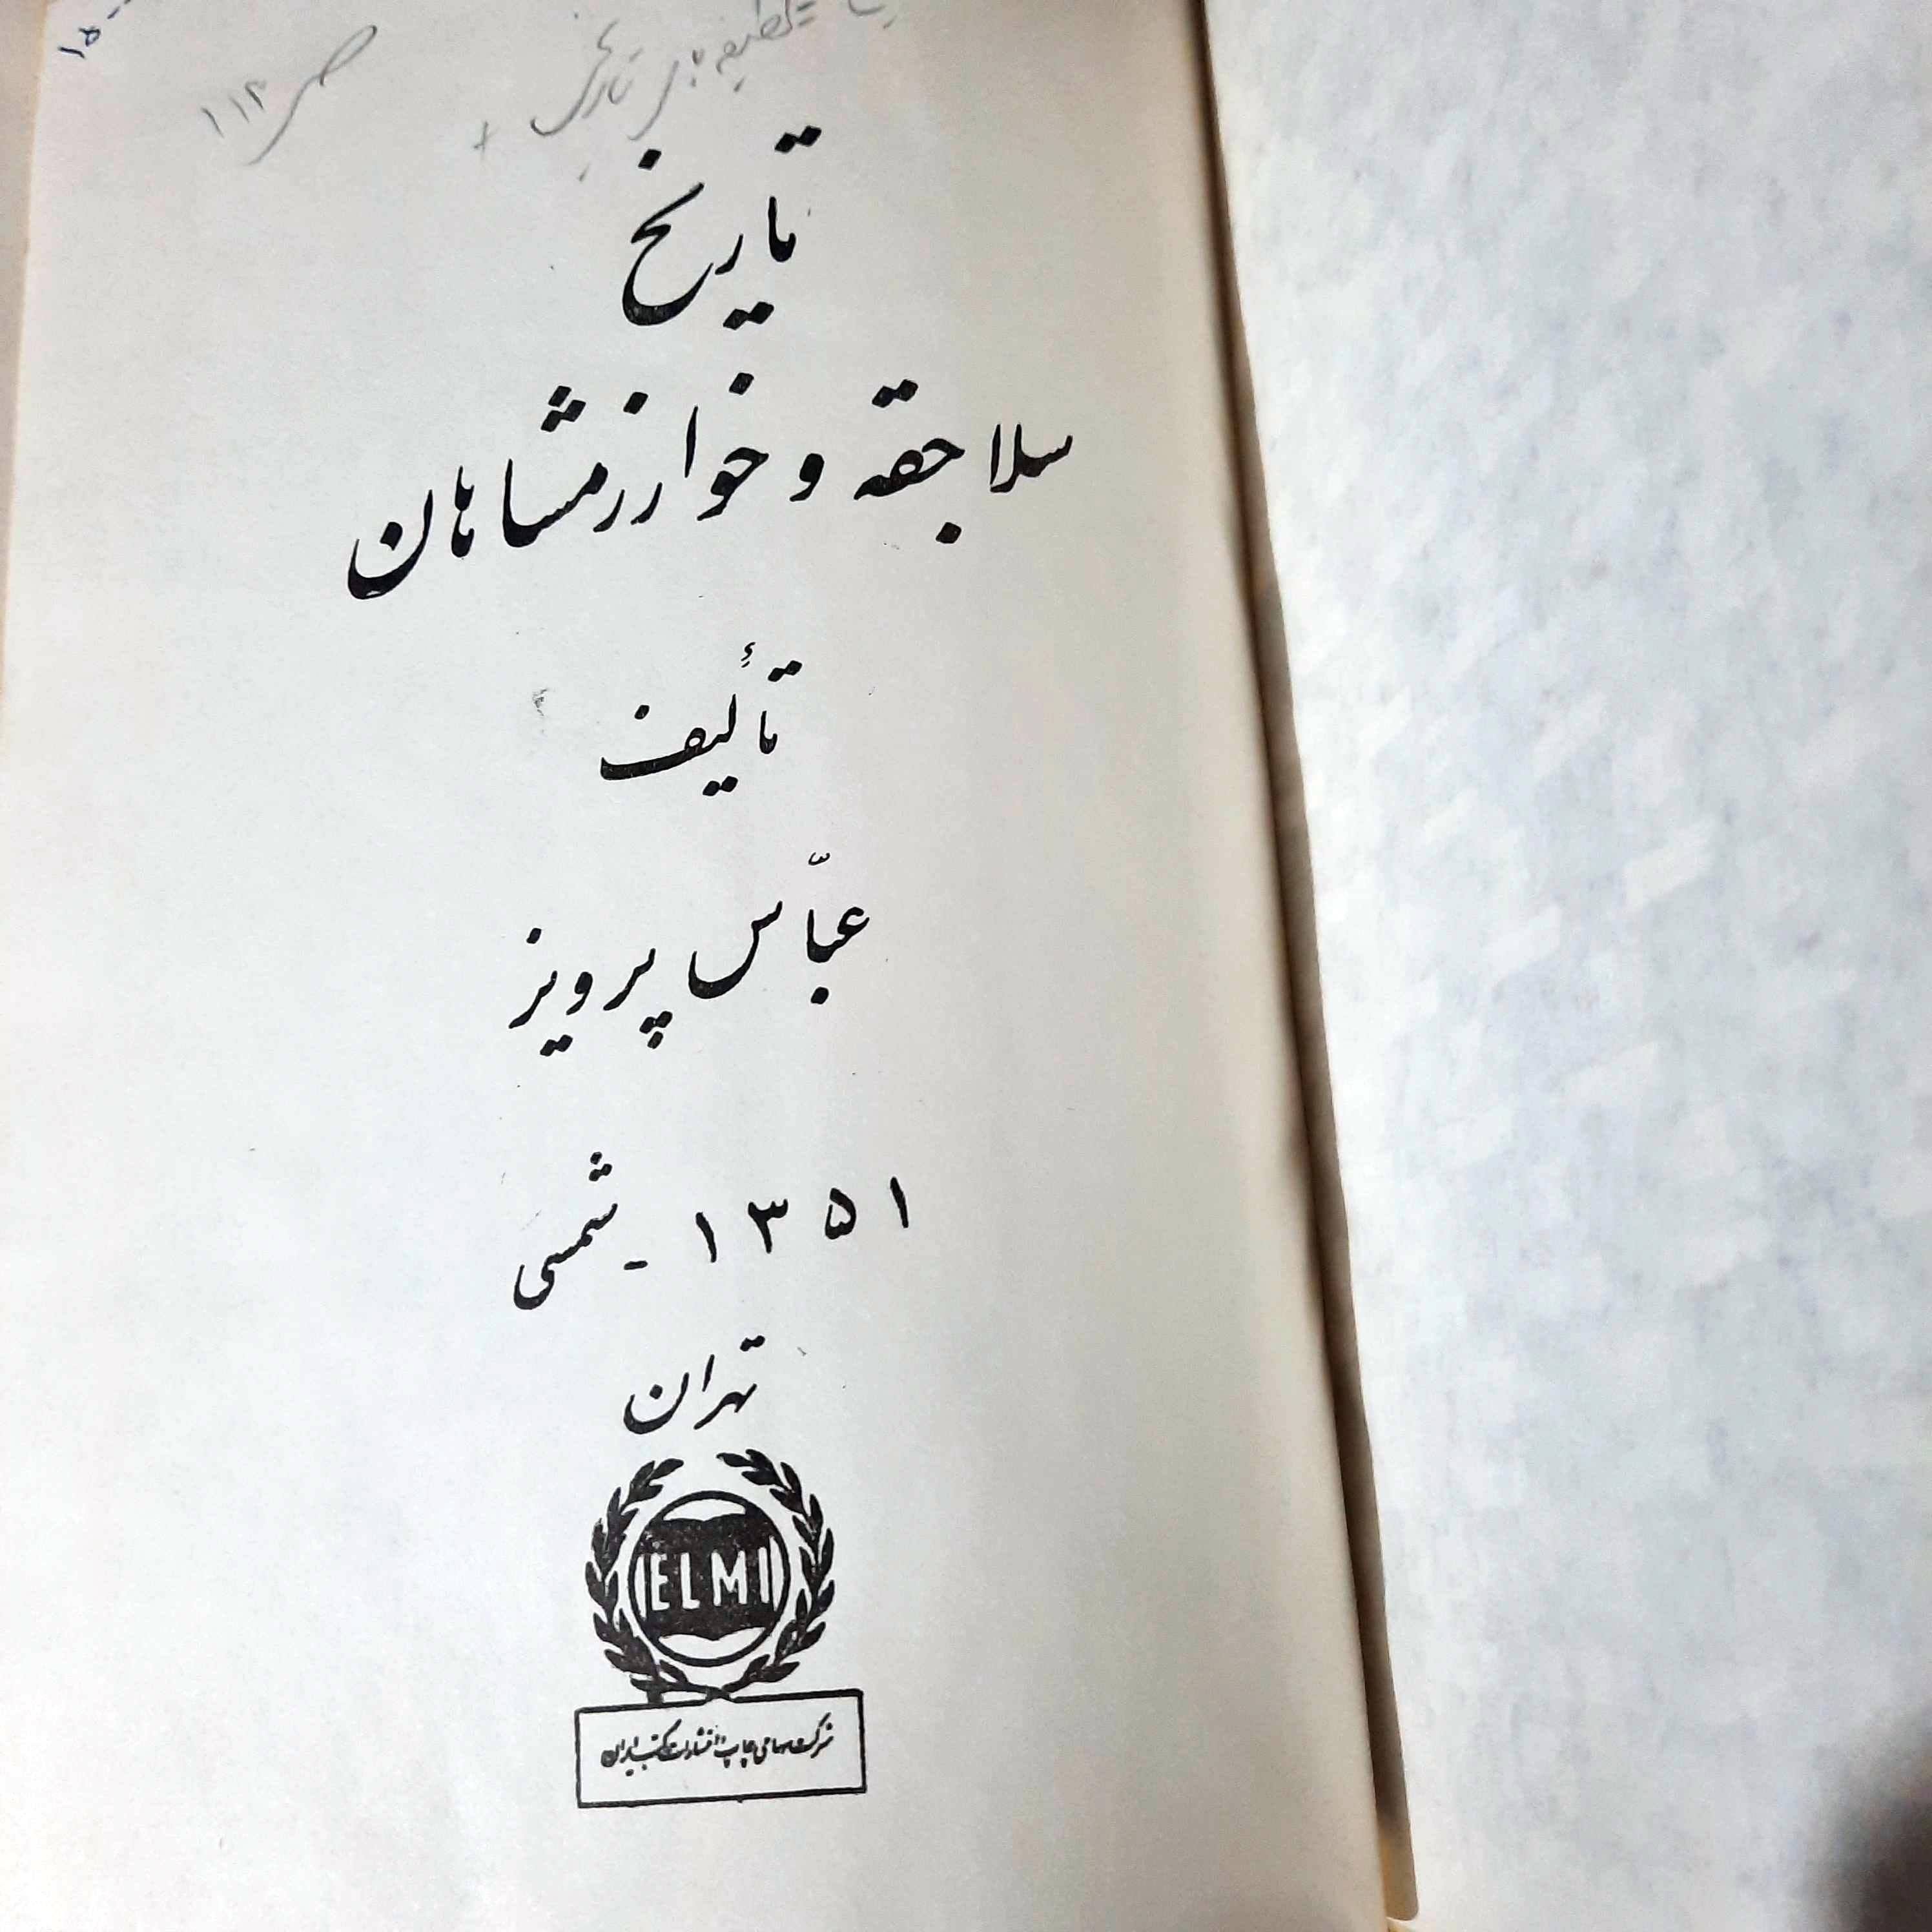 ۱۵۰۰
ص ۱۱۲
تاریخ
سلاجقه و خوارزمشاهان
تألیف
عبّاس پرویز
۱۳۵۱ - شمسی
تهران
ELMI
شرکت سهامی چاپ و انتشارات کتب ایران